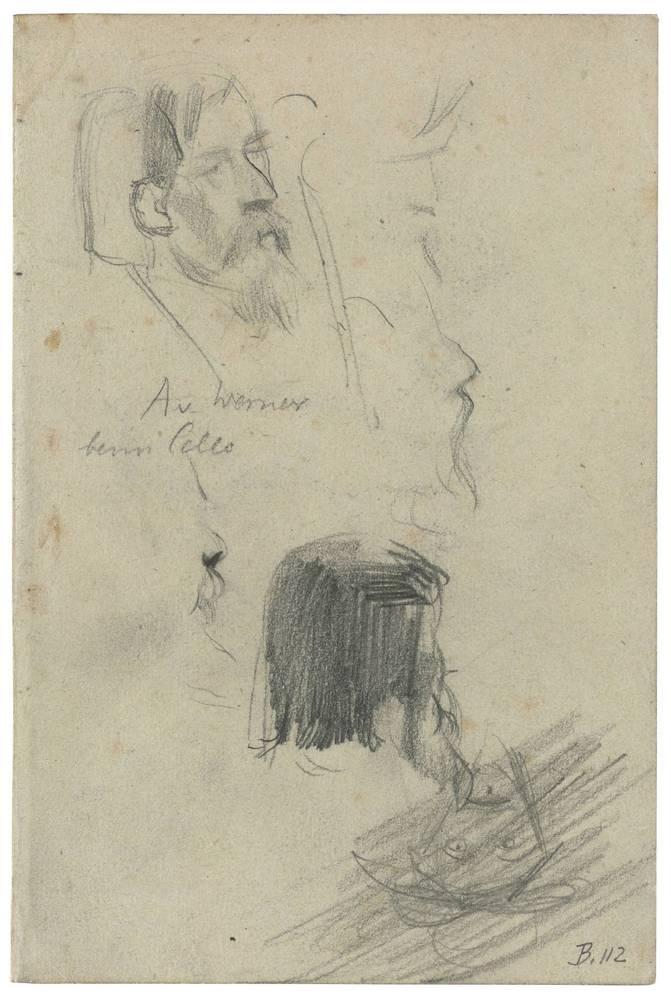 A v. Werner
beim Cello
B. 112